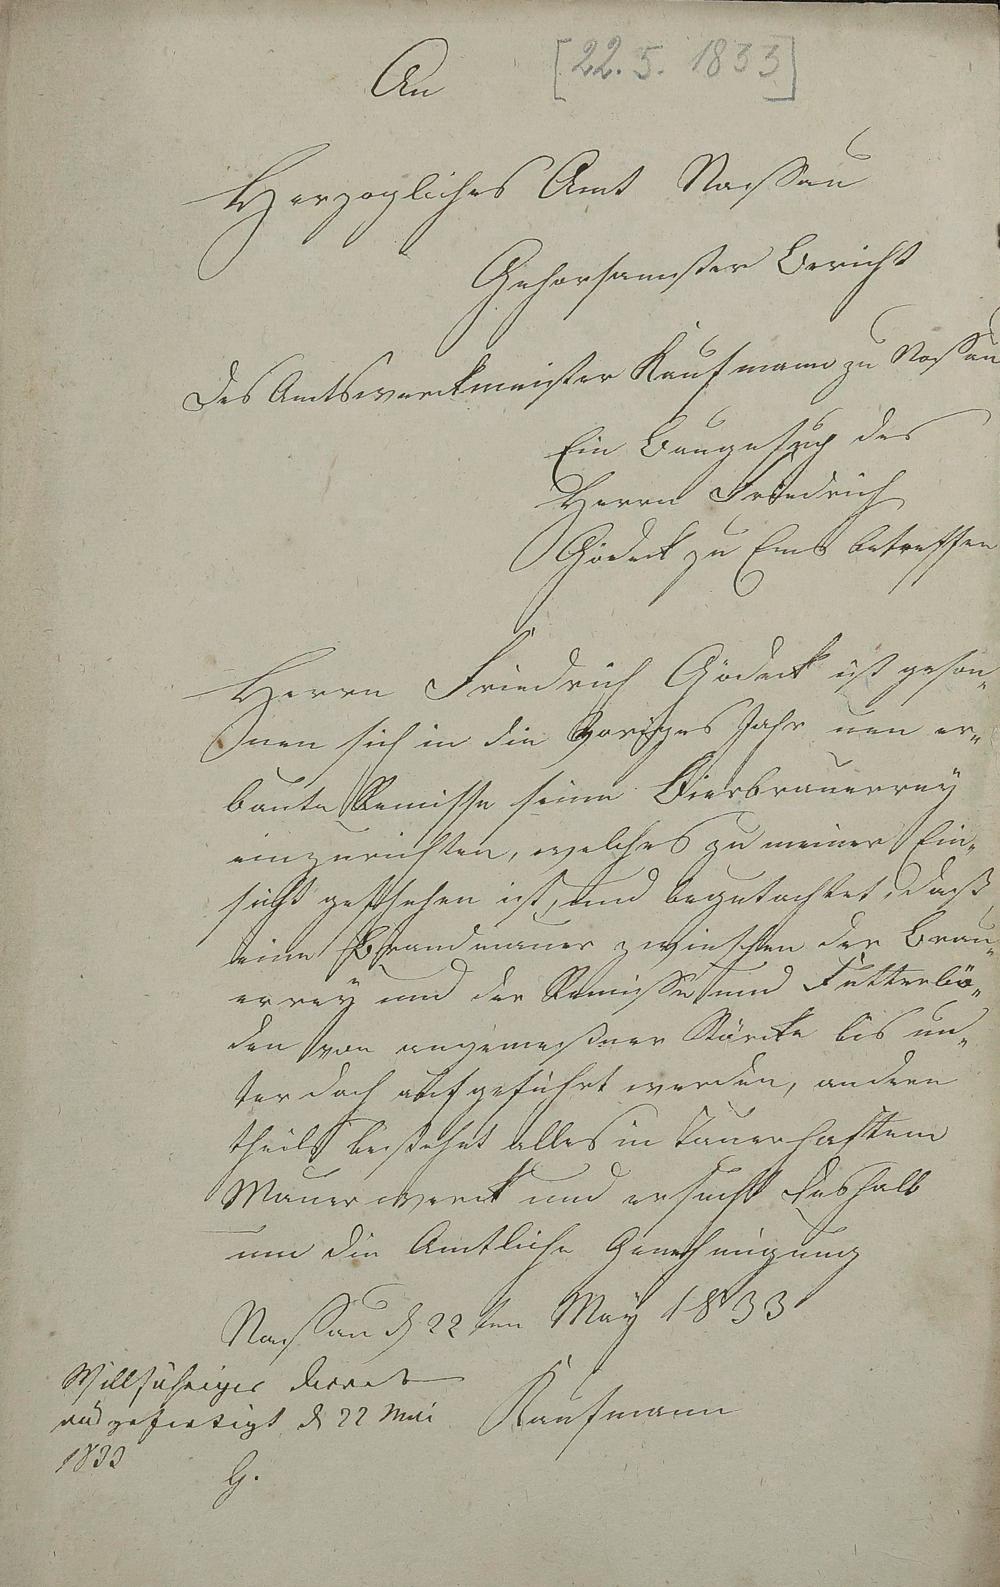 An
[22.5.1833]
Herzogliches Amt Nassau
Gehorsamster Bericht
des Amtswerckmeister Kaufmann zu Nassau
Ein Baugesuch des
Herrn Friedrich
Gödeck zu Ems betreffen
Herrn Friedrich Gödeck ist geson„
nen sich in die Voriges Jahr neu er„
baute Remisse seine Bierbrauerrey
einzurichten, welches zu meiner Ein„
sicht geschehen ist, und begutachtet, daß
eine Brandmauer zwieschen der Brau„
errey und der Remisse und Futterbö„
den von angemeßner Stärcke bis un„
ter dach aufgeführt werden, andern
theils bestehet alles in Dauerhaftem
Mauerwerck und ersucht deshalb
um die Amtliche Genehmigung
Nassau d 22ten May 1833
Kaufmann
Willfähriges Decret
ausgefertigt d 22 Mai
1833
G.